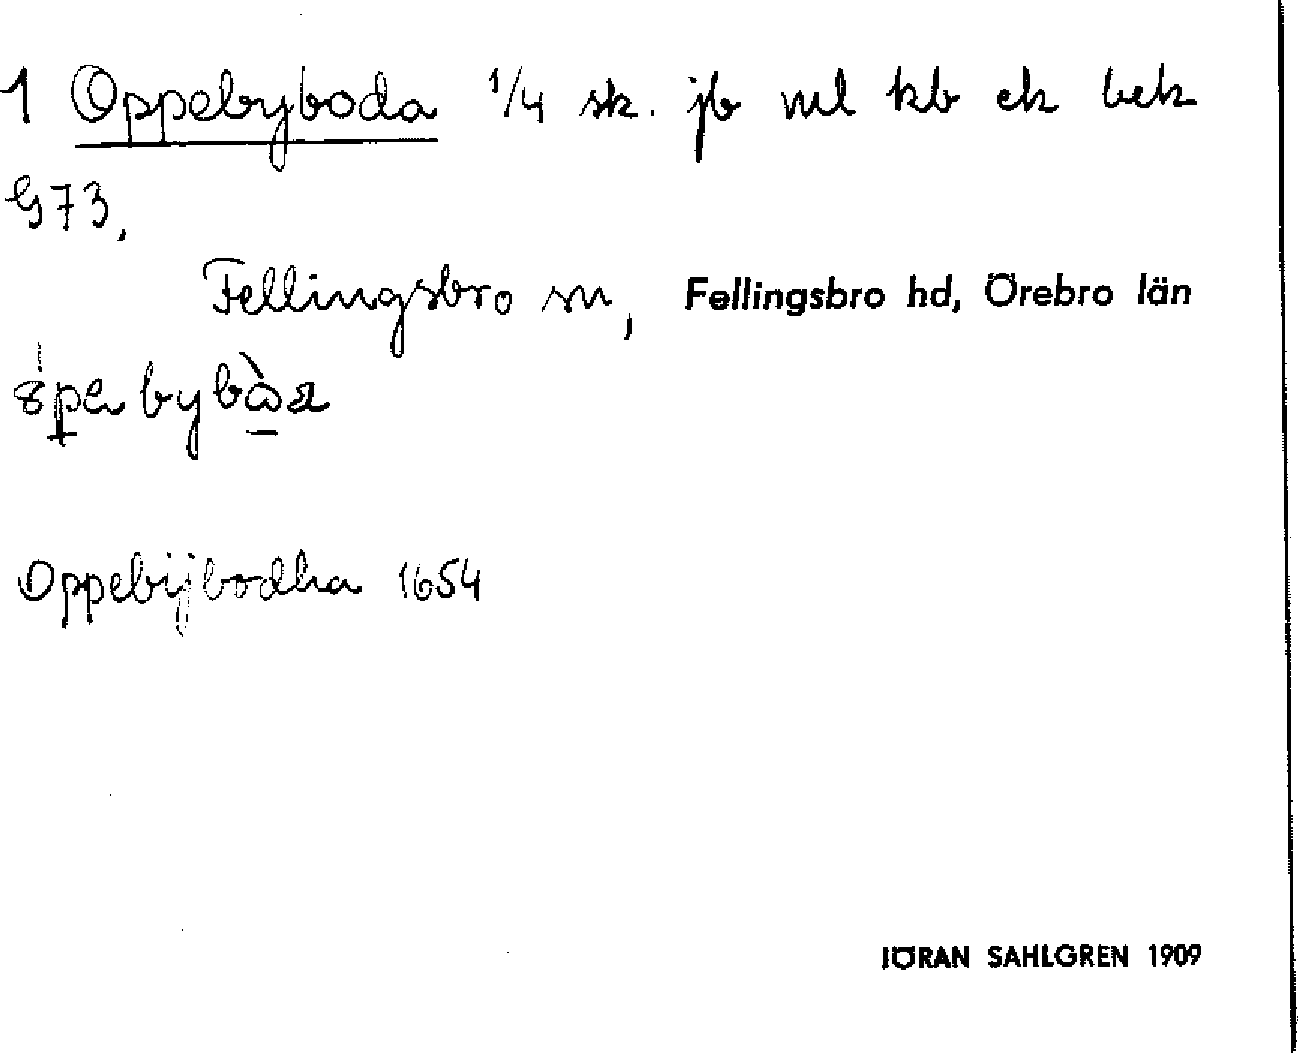 1 Oppebyboda 1/4 sk. jb ml kb ek bek
G73,
Fellingsbro sn, Fellingsbro hd, Örebro län
Oppebijbodha 1654
JÖRAN SAHLGREN 1909